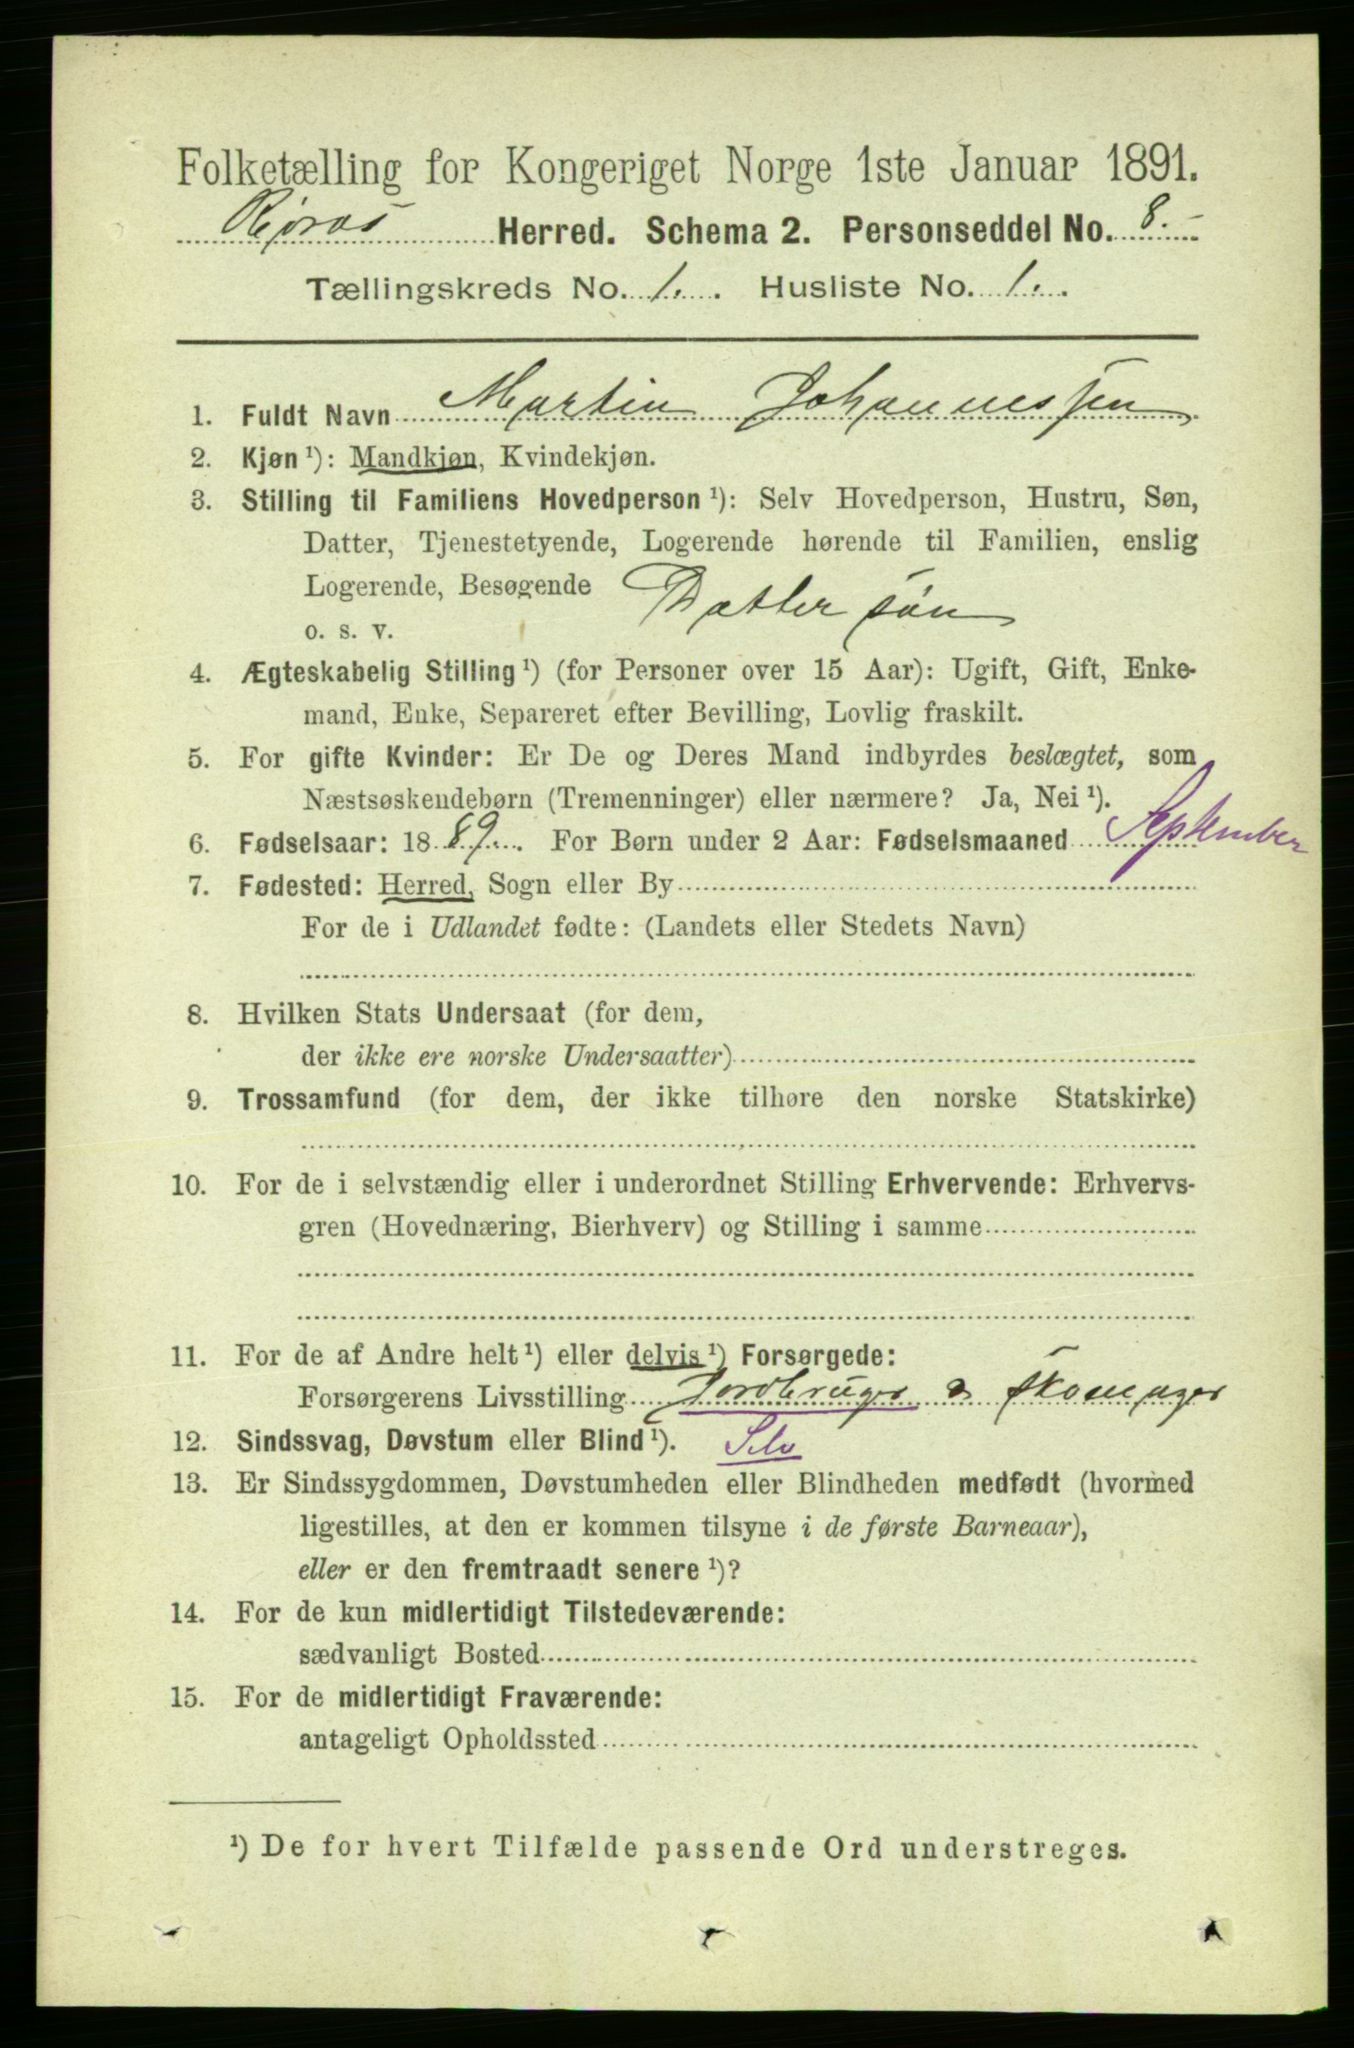 Folketælling for Kongeriget Norge 1ste Januar 1891.
Røros Herred. Schema 2. Personseddel No. 8.
Tællingskreds No. 1. Husliste No. 1.
1. Fuldt Navn Martin Johannessen
2. Kjøn ¹): Mandkjøn, Kvindekjøn.
3. Stilling til Familiens Hovedperson ¹): Selv Hovedperson, Hustru, Søn,
Datter, Tjenestetyende, Logerende hørende til Familien, enslig
Logerende, Besøgende Dattersøn
o. s. v.
4. Ægteskabelig Stilling ¹) (for Personer over 15 Aar): Ugift, Gift, Enke-
mand, Enke, Separeret efter Bevilling, Lovlig fraskilt.
5. For gifte Kvinder: Er De og Deres Mand indbyrdes beslægtet, som
Næstsøskendebørn (Tremenninger) eller nærmere? Ja, Nei ¹).
6. Fødselsaar: 1889. For Børn under 2 Aar: Fødselsmaaned September
7. Fødested: Herred, Sogn eller By
For de i Udlandet fødte: (Landets eller Stedets Navn)
8. Hvilken Stats Undersaat (for dem,
der ikke ere norske Undersaatter)
9. Trossamfund (for dem, der ikke tilhøre den norske Statskirke)
10. For de i selvstændig eller i underordnet Stilling Erhvervende: Erhvervs-
gren (Hovednæring, Bierhverv) og Stilling i samme
11. For de af Andre helt ¹) eller delvis ¹) Forsørgede:
Forsørgerens Livsstilling Jordbruger & Skomager
12. Sindssvag, Døvstum eller Blind ¹). Selv
13. Er Sindssygdommen, Døvstumheden eller Blindheden medfødt (hvormed
ligestilles, at den er kommen tilsyne i de første Barneaar),
eller er den fremtraadt senere ¹)?
14. For de kun midlertidigt Tilstedeværende:
sædvanligt Bosted
15. For de midlertidigt Fraværende:
antageligt Opholdssted
¹) De for hvert Tilfælde passende Ord understreges.